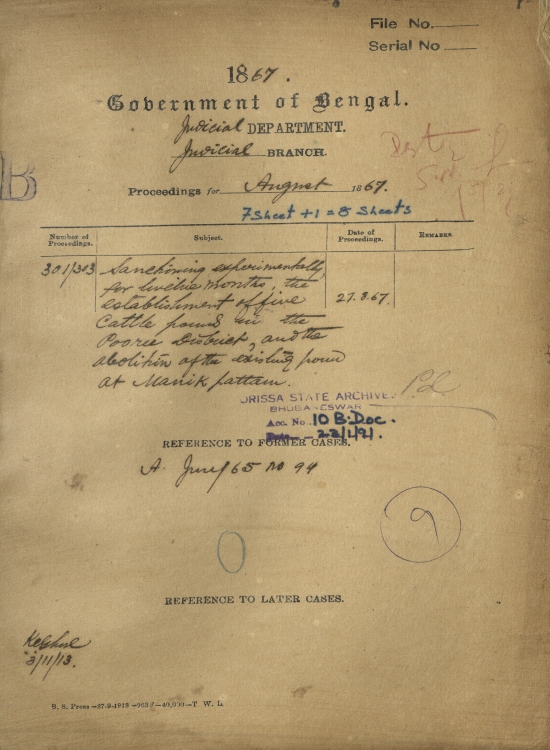 File No.
Serial No
1867.
Government of Bengal.
Judicial DEPARTMENT.
Judicial BRANCH.
B
Proceedings for August 1867.
7 Sheet + 1 = 8 Sheets
Number of Proceedings. Subject. Date of Proceedings. REMARKS.
301/303 Sanctioning experimentally,
for twelve months, the
establishment of five 27.8.67.
Cattle pounds in the
Pooree District, and the
abolition of the existing pound
at Manikpattam.
ORISSA STATE ARCHIVES
BHUBANESWAR
Acc. No. 10 B. Doc.
Date 23/1/91.
REFERENCE TO FORMER CASES.
A. June/65 no 94
9
0
REFERENCE TO LATER CASES.
3/11/13.
B. S. Press—27-9-1913—963J—40,000—T. W. L.